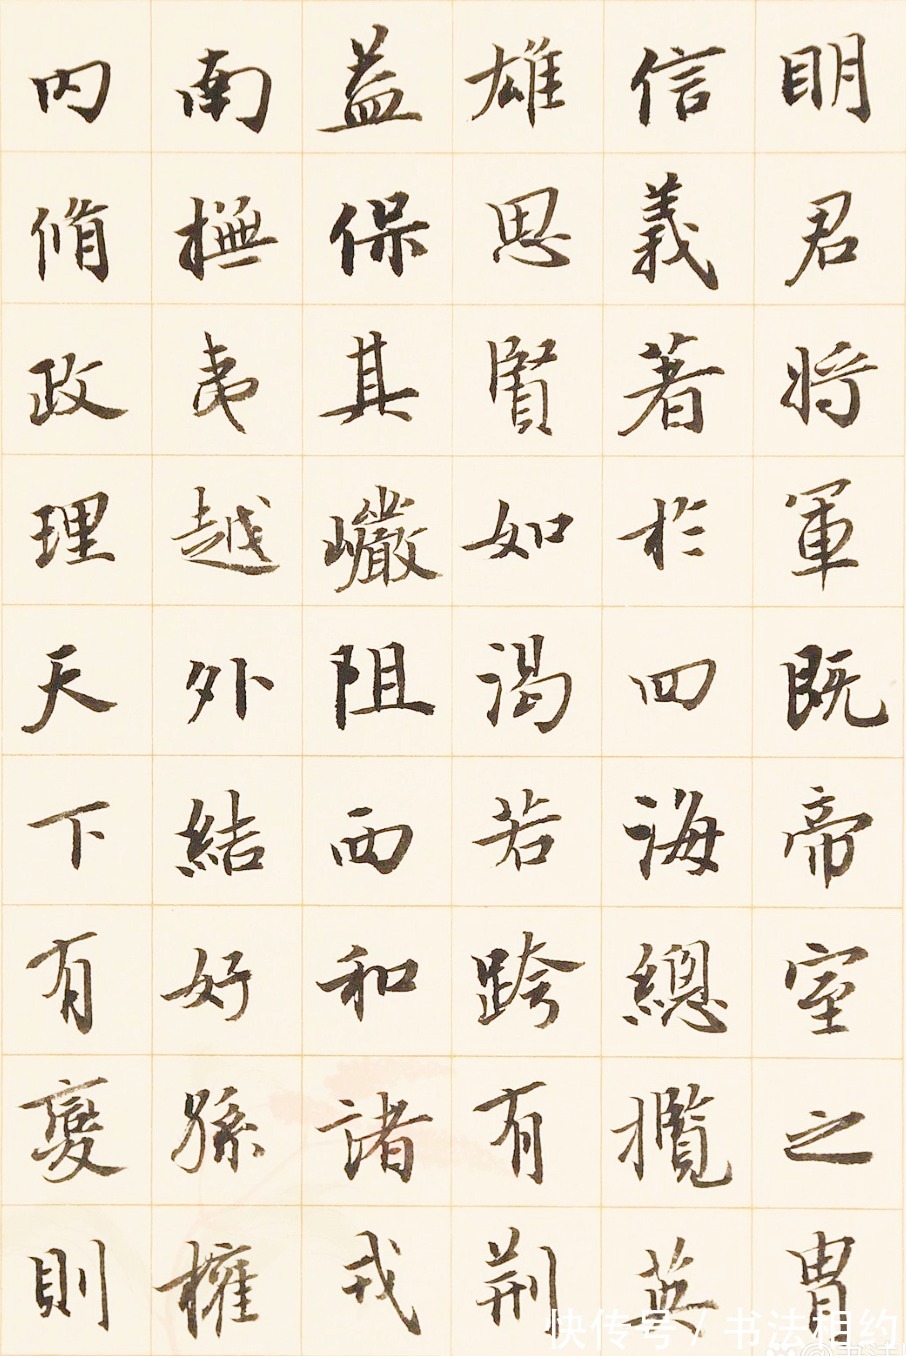 明君將軍既帝室之胄
信義著於四海總攬英
雄思賢如渴若跨有荆
益保其巖阻西和諸戎
南撫夷越外結好孫權
内脩政理天下有變則
快传号/书法相约